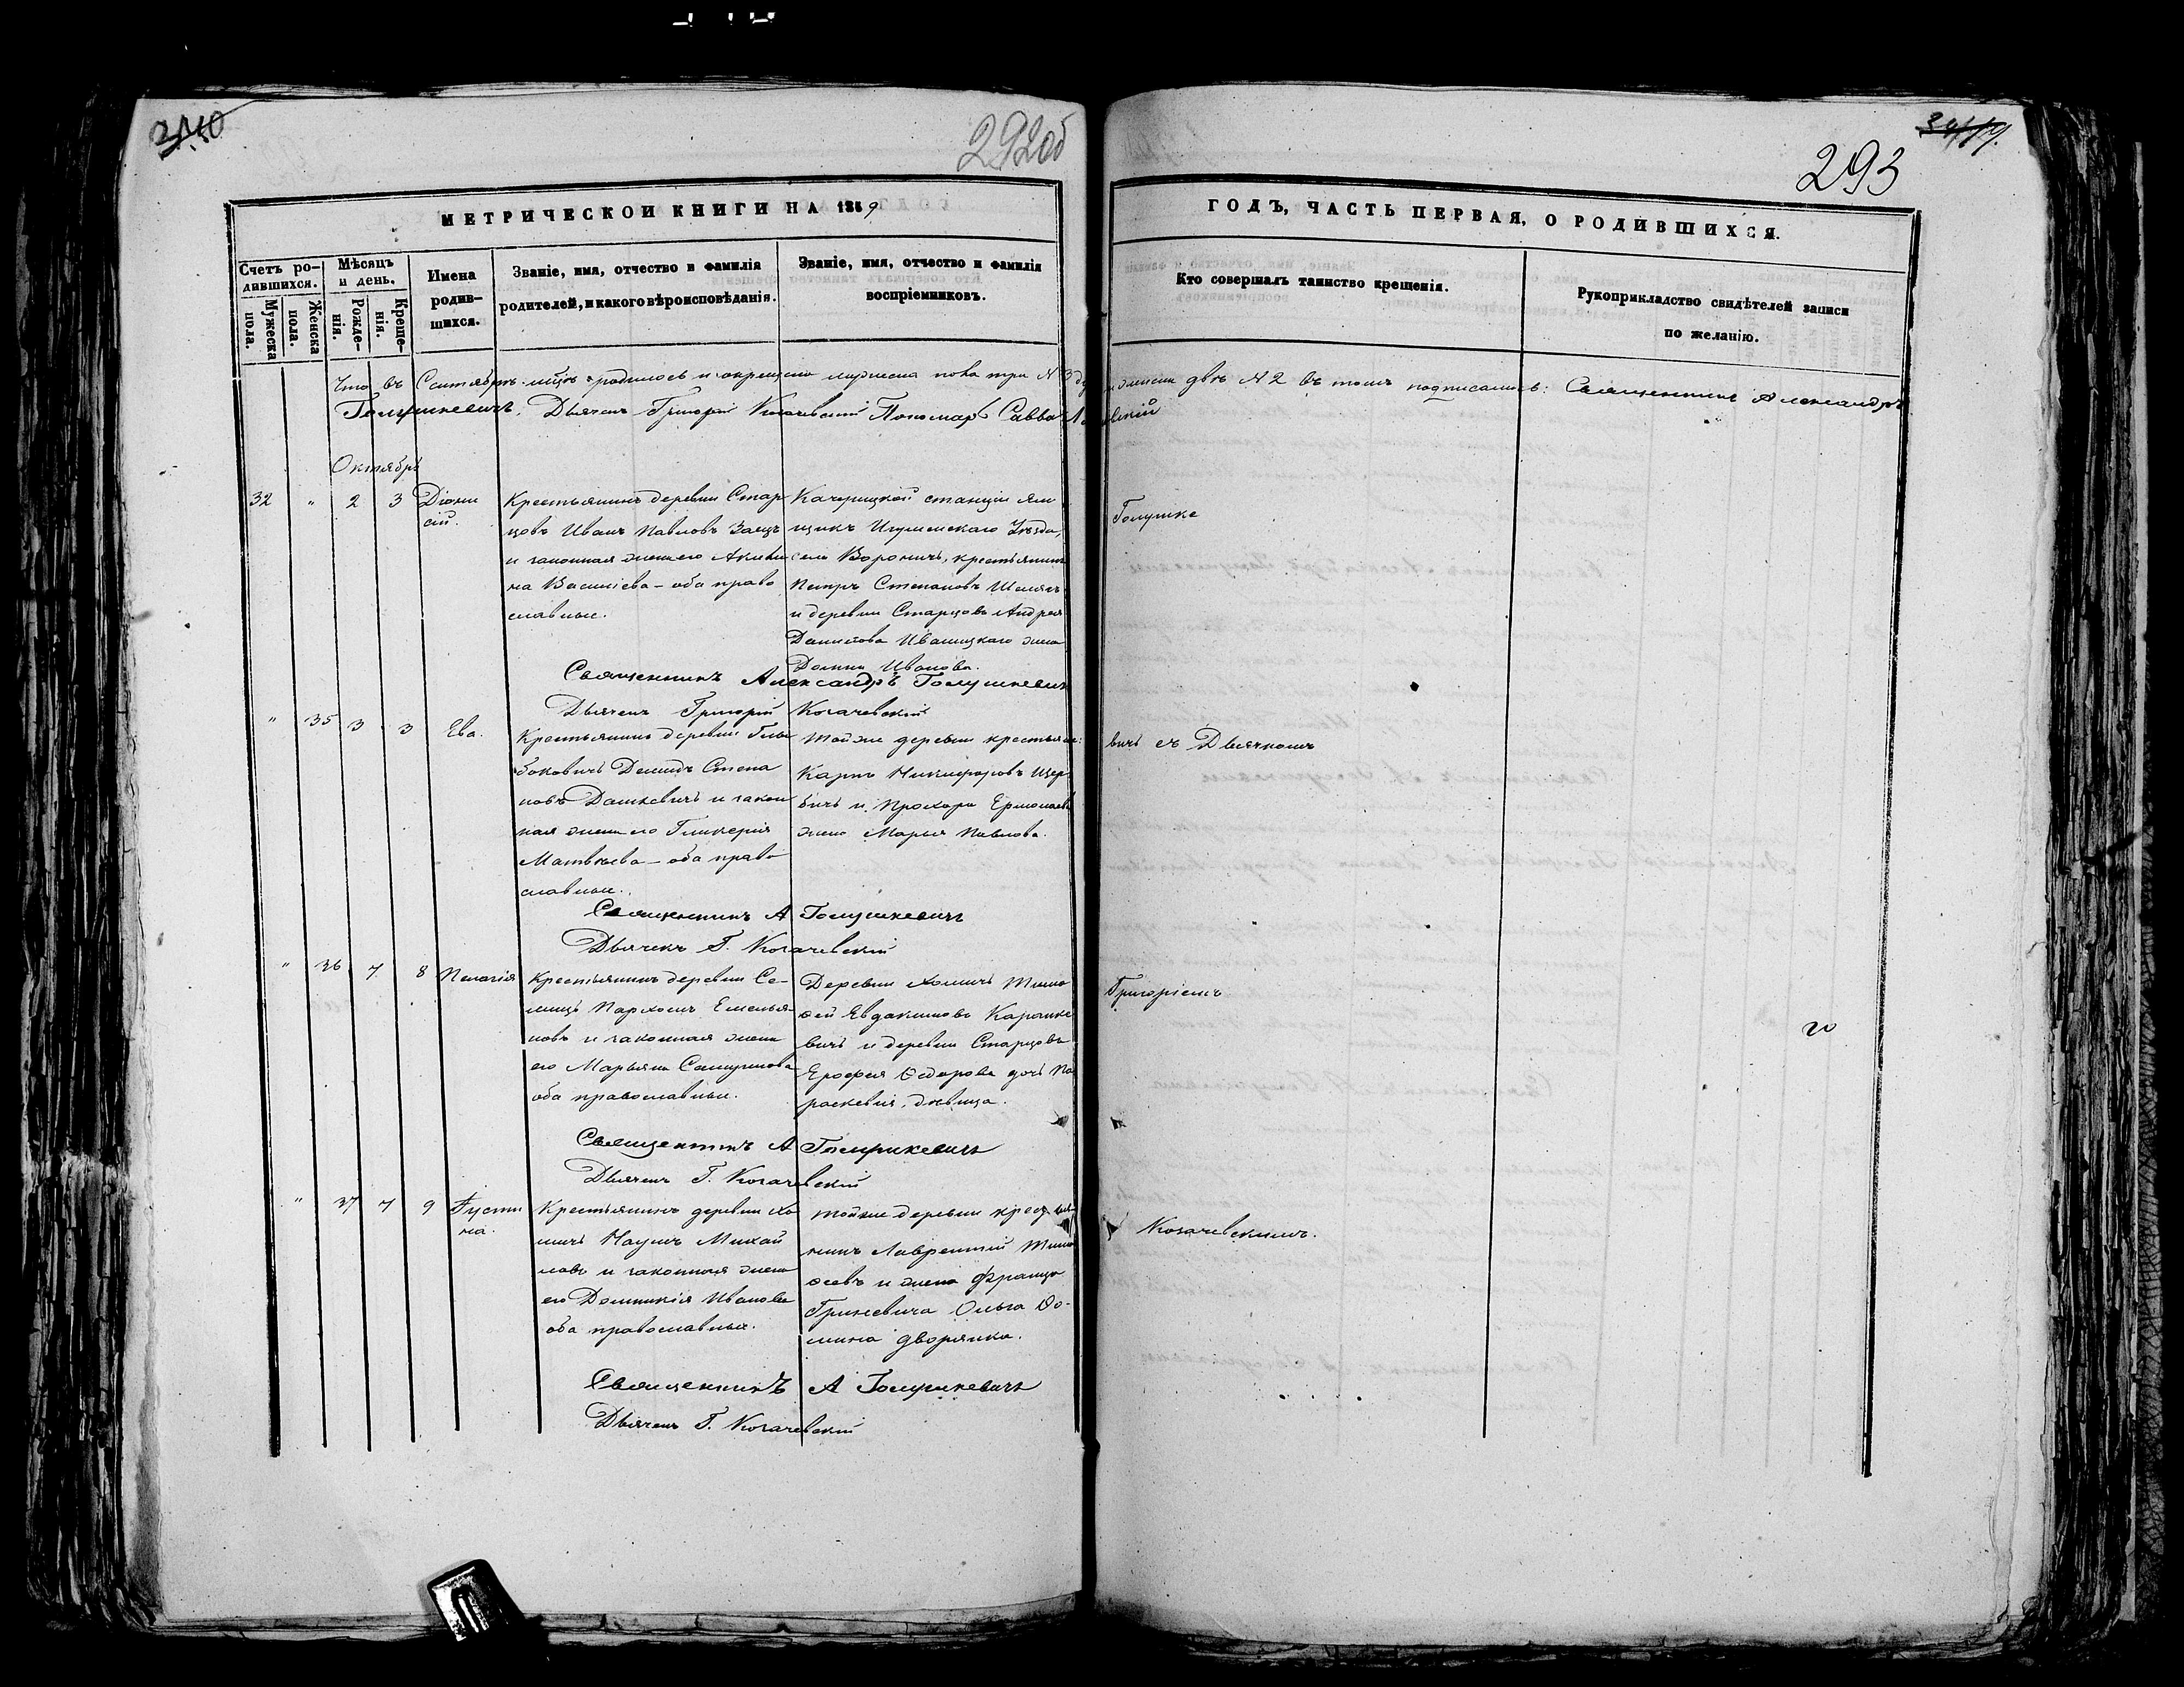 292об
293
МЕТРИЧЕСКОЙ КНИГИ НА 1869
ГОДЪ, ЧАСТЬ ПЕРВАЯ, О РОДИВШИХСЯ.
Счетъ родившихся.
Мужеска пола.
Женска пола.
Мѣсяцъ и день.
Рожденія.
Крещенія.
Имена родившихся.
Званіе, имя, отчество и фамилія
родителей, и какого вѣроисповѣданія.
Званіе, имя, отчество и фамилія
воспріемниковъ.
Кто совершалъ таинство крещенія.
Рукоприкладство свидѣтелей записи
по желанію.
Что въ Сентябрѣ родилось и окрещено мужеска пола три № 3 женска двѣ № 2 въ томъ подписались: Священникъ Александръ
Голушкевичъ, Дьячекъ Григорій Когачевскій Пономарь Савва
Октябрь
32 " 2 3
Діони
сій.
Крестьянинъ деревни Стар
цовъ Иванъ Павловъ Заецъ
и законная жена его Акили
на Василіева – оба право
славные.
станціи ям
щикъ Игуменскаго Уѣзда,
села Вороничъ, крестьянинъ
Петръ Степановъ
и деревни Старцовъ Андрея
Данилова Иваницкаго жена
Домна Иванова.
Священникъ Александръ Голушкевичъ
Дьячекъ Григорій Когачевскій
Голушке
" 35 3 3
Ева.
Крестьянинъ деревни Глы
боковичъ Демидъ Степа
новъ Дашкевичъ и закон
ная жена его Гликерія
Матвѣева – оба право
славные.
Тойже деревни крестьян:
Карпъ Никифоровъ Щер
бичъ и Прохора Ермолаева
жена Марья Павлова.
Священникъ А Голушкевичъ
Дьячекъ Г. Когачевскій
вичъ съ Дьячкомъ
" 36 7 8
Пелагія
Крестьянинъ деревни Се-
лицъ Пархомъ Емелья-
новъ и законная жена
его Марьяна Самуилова
оба православные.
Деревни Хомичъ Тимо
фей Евдакимовъ Каранке
вичъ и деревни Старцовъ
Ерофея Ѳедорова дочь Па
раскевія, дѣвица.
Священникъ А Голушкевичъ
Дьячекъ Г. Когачевскій
Григоріемъ
20
" 37 7 9
Іусти
на.
Крестьянинъ деревни Хо
мичъ Наумъ Михай
ловъ и законная жена
его Домникія Иванова
оба православные.
Тойже деревни крестья-
нинъ Лаврентій Тимо
феевъ и жена Франца
Гриневича Ольга Ѳо-
мина дворянка.
Священникъ А Голушкевичъ
Дьячекъ Г. Когачевскій
Когачевскимъ.